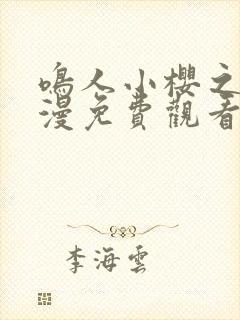 鳴人小櫻之
漫免費觀看
李海雲